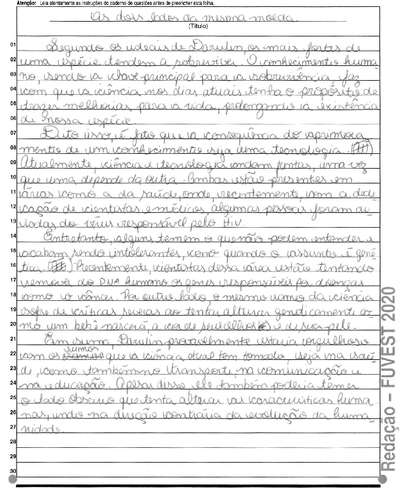 Atenção: Leia atentamente as instruções do caderno de questões antes de preencher esta folha.
Os dois lados da mesma moeda
(Título)
01 Segundo os ideais de Darwin, os mais fortes de
uma espécie tendem a sobreviver. O conhecimento huma-
no, sendo a chave principal para a sobrevivência, faz
com que a ciência nos dias atuais tenha o propósito de
05 trazer melhorias para a vida, prolongando a existência
de nossa espécie.
Dito isso, é fato que a consequência do aprimora-
mento de um conhecimento seja uma tecnologia.
Atualmente, ciência e tecnologia andam juntas, uma vez
10 que uma depende da outra. Ambas estão presentes em
áreas como a da saúde, onde, recentemente, com a dedi-
cação de cientistas e médicos, algumas pessoas foram
do vírus responsável pelo HIV.
Entretanto, alguns temem o que não podem entender e
15 acabam sendo intolerantes, como quando o assunto é gené-
tica. Recentemente, cientistas dessa área estão tentando
remover do DNA humano os genes responsáveis por doenças
como o câncer. Por outro lado, o mesmo ramo da ciência
sofre de críticas severas ao tentar alterar geneticamente co-
20 mo um bebê nascerá, a cor de seu olho e de sua pele.
Em suma, Darwin provavelmente estaria orgulhoso
com os rumos que a ciência atual tem tomado, seja na saú-
de, como também no transporte, na comunicação e
na educação. Apesar disso, ele também poderia temer
25 o lado obscuro que tenta alterar as características huma-
nas, indo na direção contrária da evolução da huma-
nidade.
28
29
30
Redação – FUVEST 2020